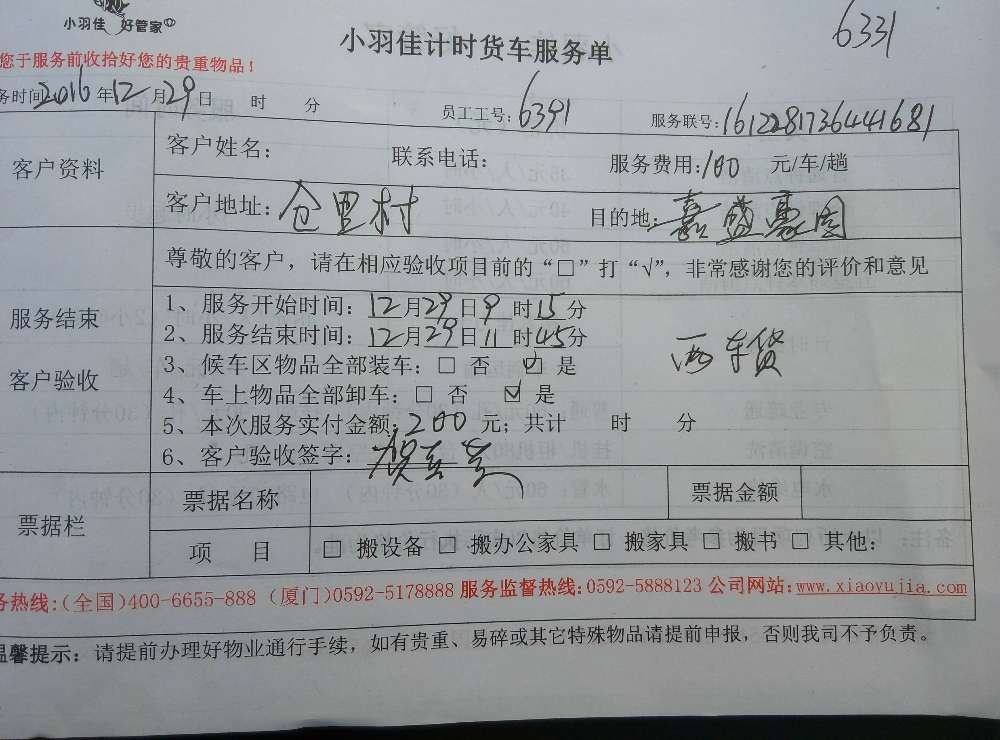 小羽佳 好管家
6331
小羽佳计时货车服务单
您于服务前收拾好您的贵重物品!
务时间2016年12月29日 时 分 员工工号:6391 服务联号:1612281736441681
客户资料 客户姓名: 联系电话: 服务费用:100 元/车/趟
客户地址:仓里村 目的地:嘉盛豪园
尊敬的客户,请在相应验收项目前的“□”打“√”,非常感谢您的评价和意见
服务结束
客户验收
1、服务开始时间:12月29日9时15分
2、服务结束时间:12月29日11时45分
两车货
3、候车区物品全部装车:□ 否 ☑ 是
4、车上物品全部卸车:□ 否 ☑ 是
5、本次服务实付金额:200元;共计 时 分
6、客户验收签字:
票据栏 票据名称 票据金额
项 目 □ 搬设备 □ 搬办公家具 □ 搬家具 □ 搬书 □ 其他:
务热线:(全国)400-6655-888 (厦门)0592-5178888 服务监督热线:0592-5888123 公司网站:www.xiaoyujia.com
温馨提示:请提前办理好物业通行手续,如有贵重、易碎或其它特殊物品请提前申报,否则我司不予负责。